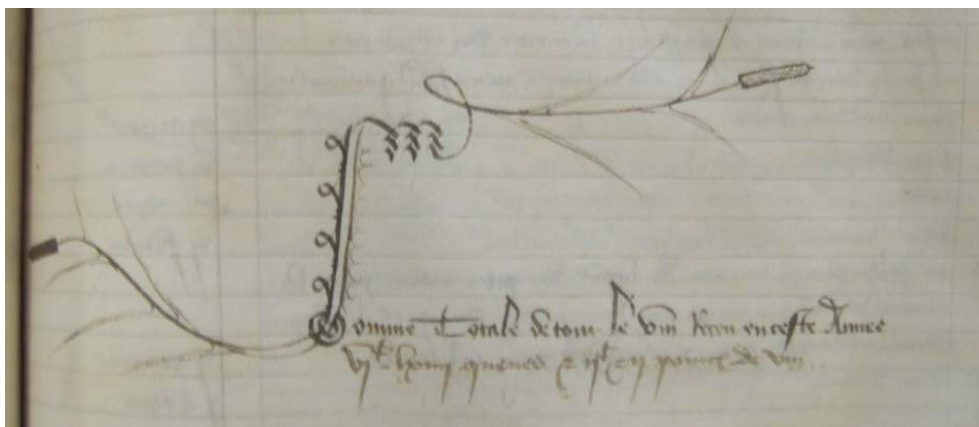 Somme Totale de tout le vin Receu en ceste Annee
vjᶜ queues et ijᶜ de vin